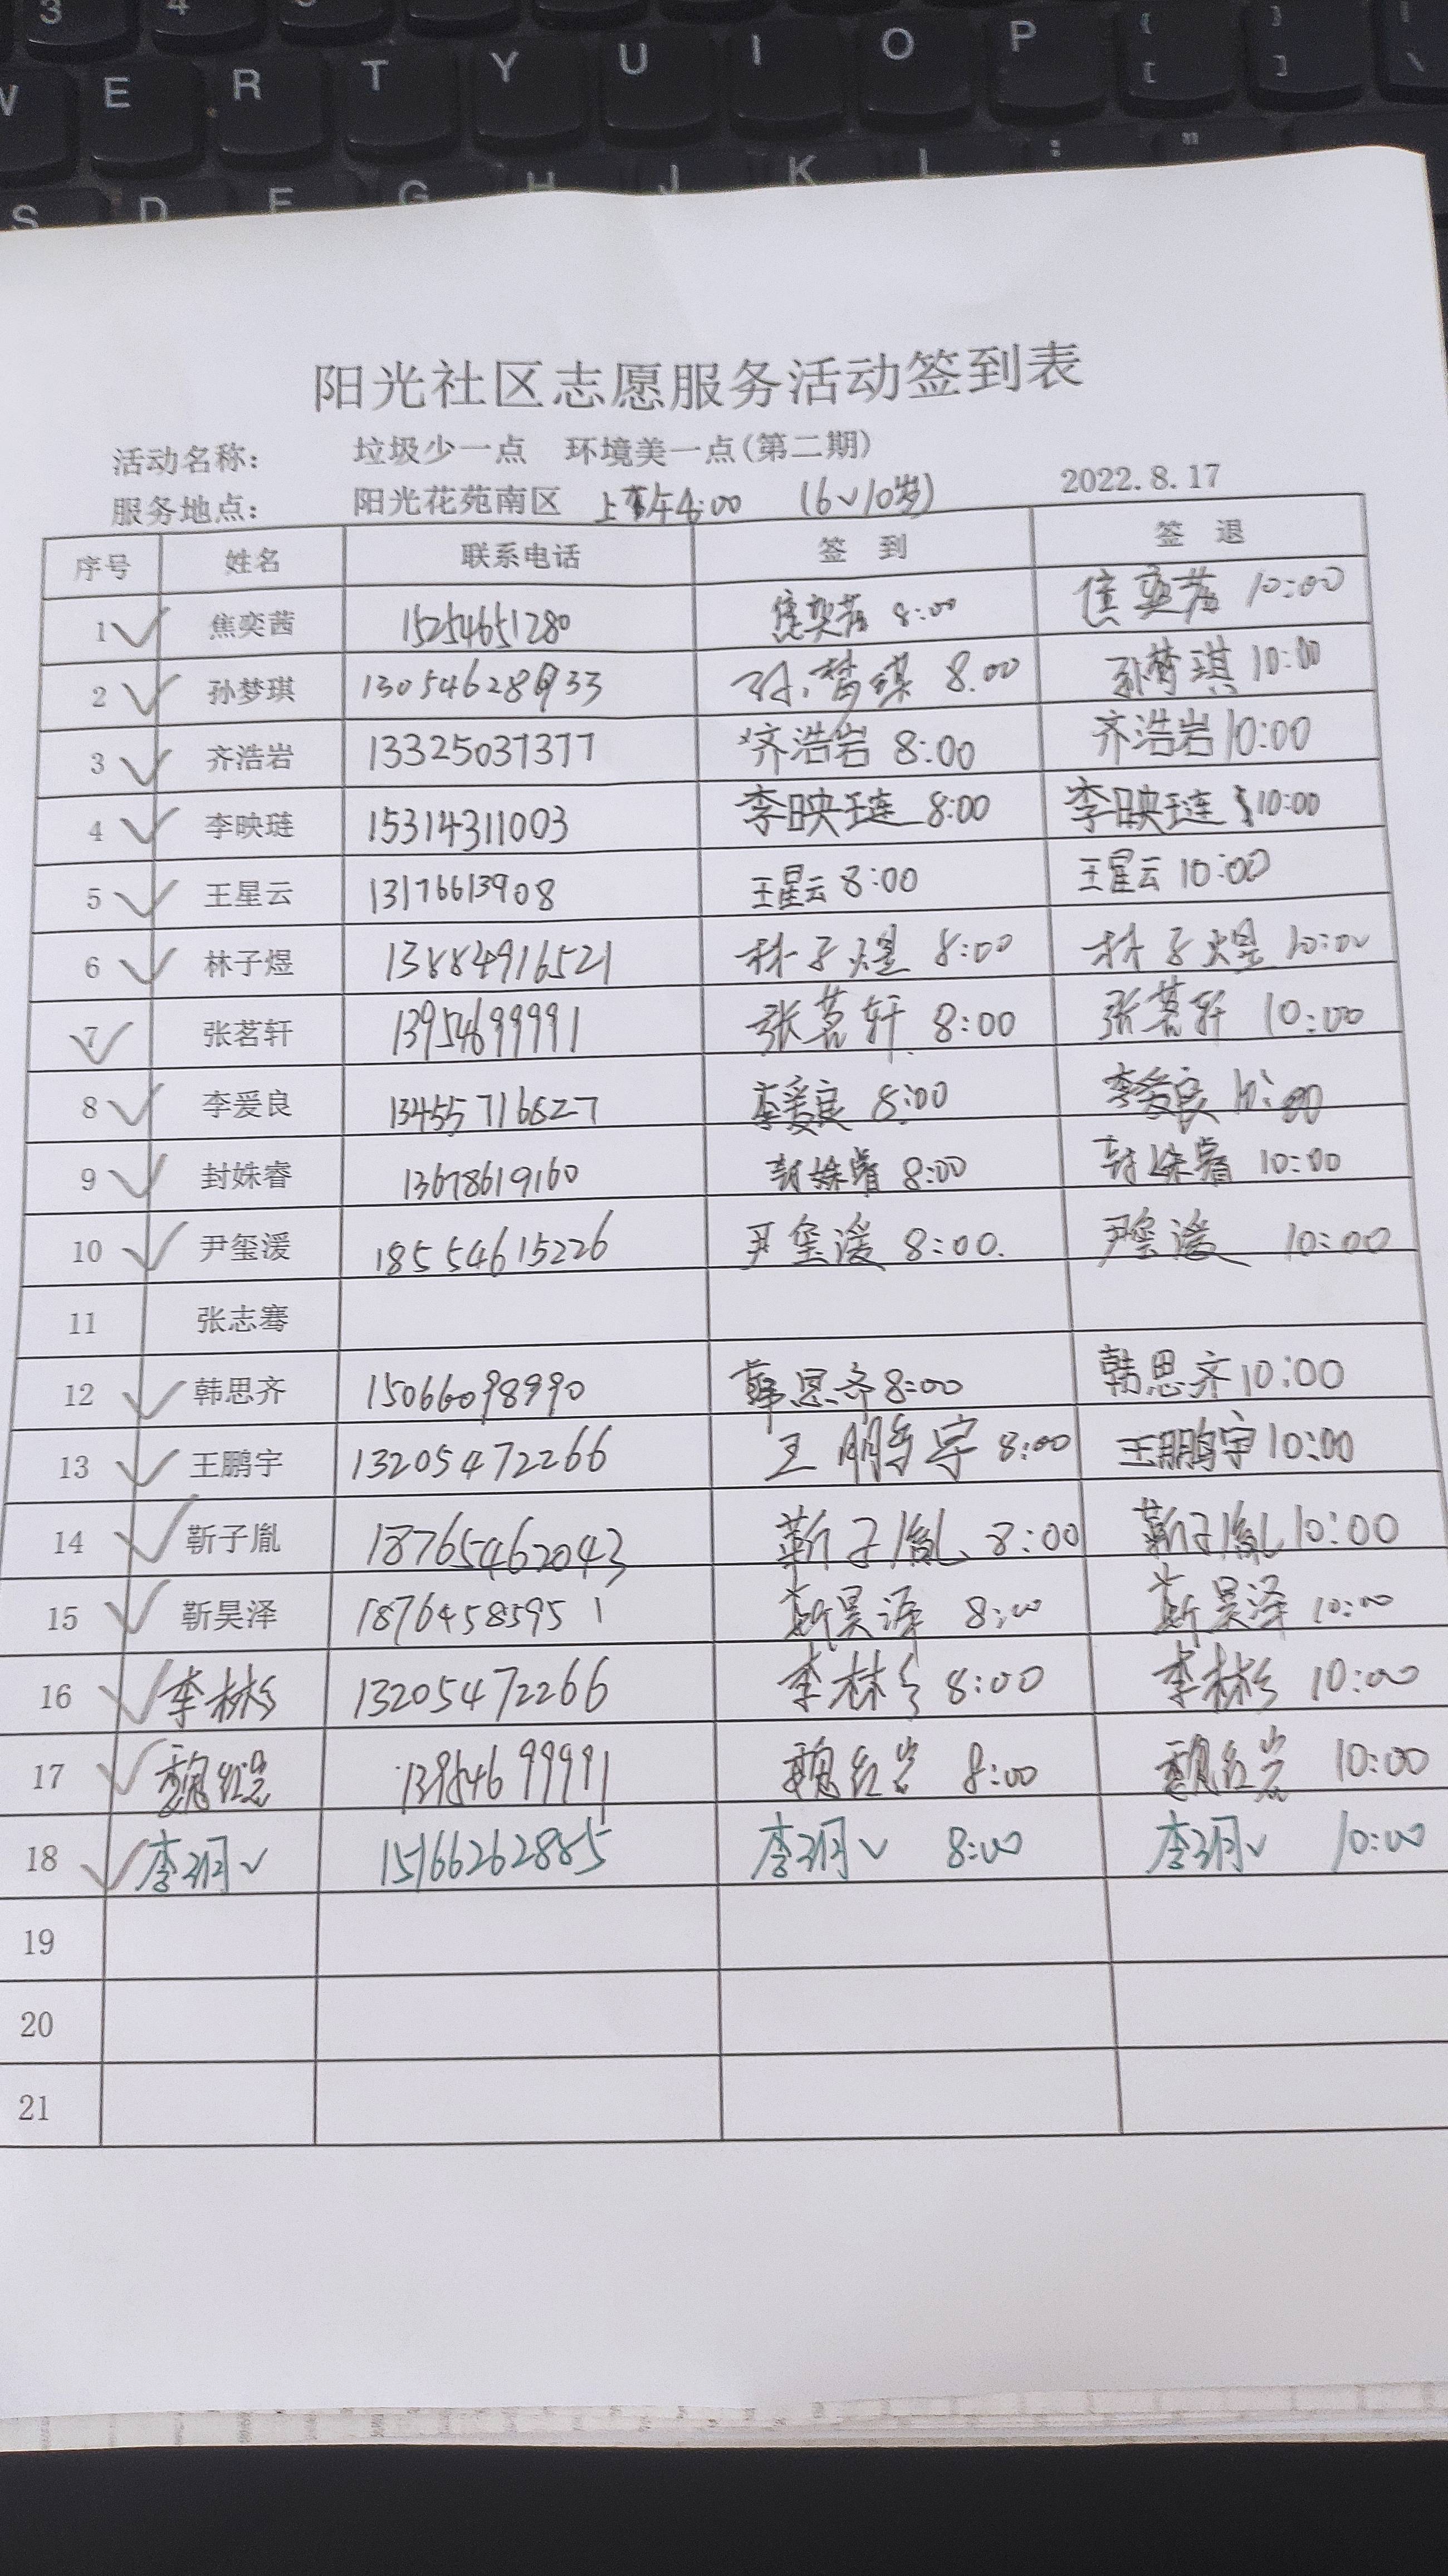 3 4
W E R T Y U I O P { [ } ] | \
S D F G H J K L : "
阳光社区志愿服务活动签到表
活动名称： 垃圾少一点 环境美一点(第二期)
服务地点： 阳光花苑南区 上午 :00 (6~10岁) 2022.8.17
序号 姓名 联系电话 签 到 签 退
1 焦奕茜 15254651280 焦奕茜 8:00 焦奕茜 10:00
2 孙梦琪 13054628933 孙梦琪 8.00 孙梦琪 10:00
3 齐浩岩 13325037377 齐浩岩 8:00 齐浩岩 10:00
4 李映琏 15314311003 李映琏 8:00 李映琏 10:00
5 王星云 13176613908 王星云 8:00 王星云 10:00
6 林子煜 13884916521 林子煜 8:00 林子煜 10:00
7 张茗轩 13954699991 张茗轩 8:00 张茗轩 10:00
8 李爰良 13455716827 李爰良 8:00 李爰良 10:00
9 封姝睿 13678619160 封姝睿 8:00 封姝睿 10:00
10 尹玺湲 18554615226 尹玺湲 8:00. 尹玺湲 10:00
11 张志骞
12 韩思齐 15066098990 韩思齐 8:00 韩思齐 10:00
13 王鹏宇 13205472266 王鹏宇 8:00 王鹏宇 10:00
14 靳子胤 18765462043 靳子胤 8:00 靳子胤 10:00
15 靳昊泽 18764585951 靳昊泽 8:00 靳昊泽 10:00
16 李彬 13205472266 李彬 8:00 李彬 10:00
17 魏红岩 13954699991 魏红岩 8:00 魏红岩 10:00
18 李玥 15166262885 李玥 8:00 李玥 10:00
19
20
21